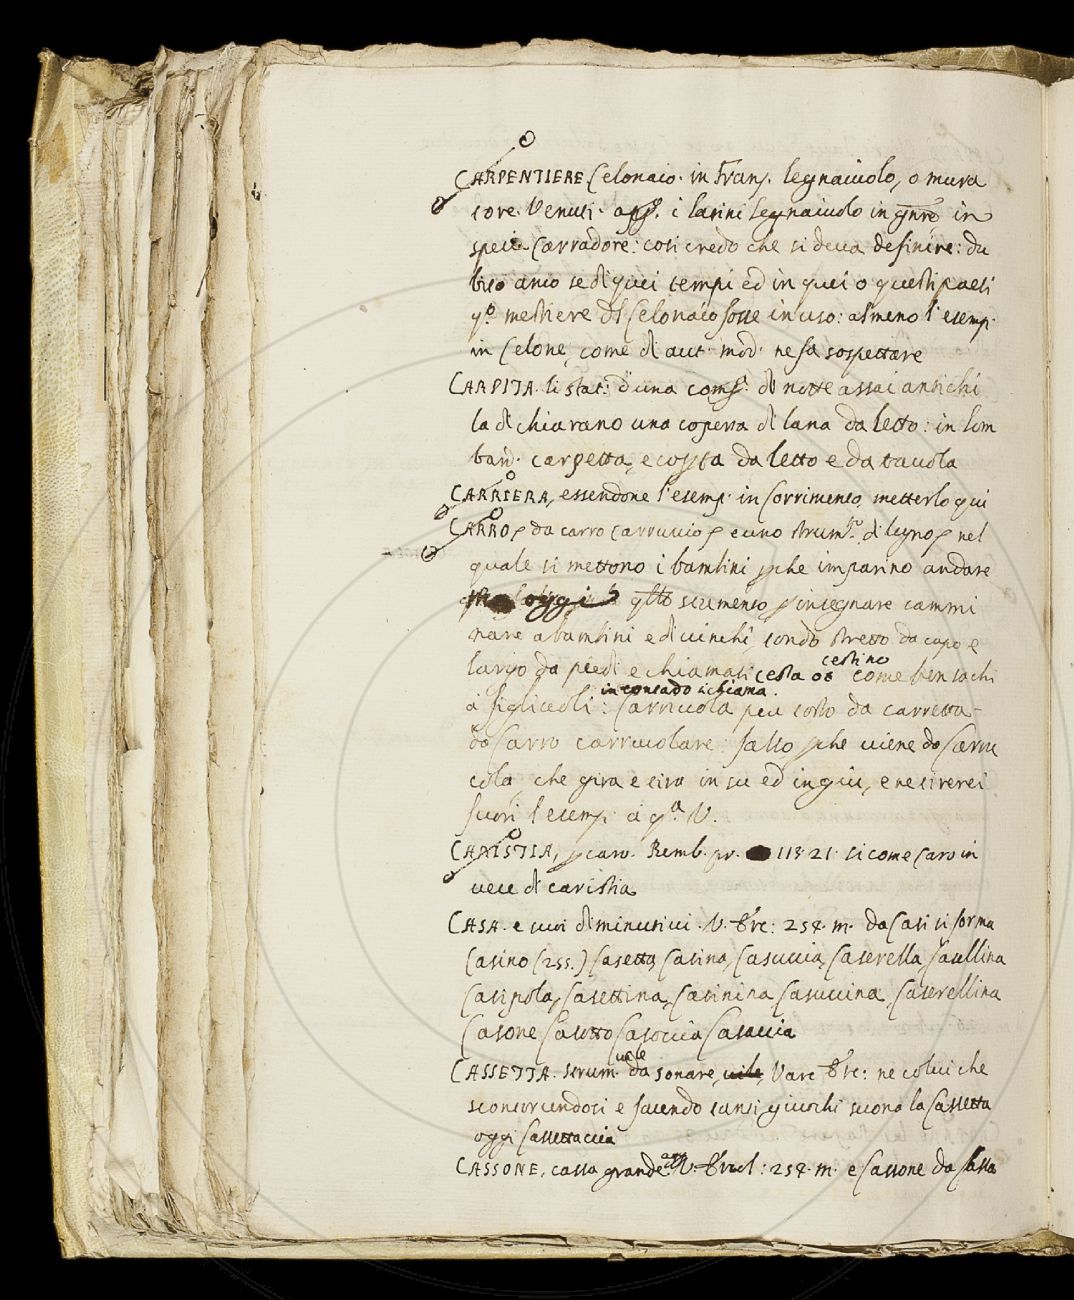 CARPENTIERE. Celonaio. in Franz. legnaiuolo, o mura
tore. Venuti. app. i latini legnaiuolo in gnre in
spezie Carradore: così credo che si deva definire: du
bito anco se di quei tempi ed in quei o questi paesi
qo. mestiere di Celonaio fosse in uso: almeno l'esemp.
in Celone, come di aut. mod. ne fa sospettare
CARPITA. li stat. d'una comp. di notte assai antichi
la dichiarano una coperta di lana da letto: in Lom
bard. carpetta, e coperta da letto e da tavola
CARRIERA, essendone l'esemp. in Corrimento, metterlo qui
CARRO, da carro carruccio, e uno strumto. di legno, nel
quale si mettono i bambini pche imparino andare
oggi qllo strumento, p insegnare cammi
nare a bambini e di vinchi, tondo stretto da capo e
largo da piedi e chiamasi cesta o cestino come ben sachi
in contado si chiama.
à figliuoli: Carriuola piu tosto da carretta
do Carro carrucolare. fallo, pche viene da Carru
cola, che gira e tira in su ed in giu, e ne tirerei
fuori l'esemp. a qa. V.
CARISTIA, p caro. Remb. pr. 113. 21. si come Caro in
vece di caristia
CASA. e suoi diminutivi. V. Brc: 254. m. da Casi si forma
Casino (255.) Casetta, Casina, Casuccia, Caserella, Casellina
Casipola, Casettina, Casinina, Casuccina, Caserellina
Casone Casotto Casoccia Casaccia
CASSETTA. strum. vile da sonare, Varc Brc: ne colui che
scontorcendosi e facendo tanti giuochi suona la Cassetta
oggi Cassettaccia
CASSONE, cassa grande app. V. Brcl: 254. m. e Cassone da Cassa